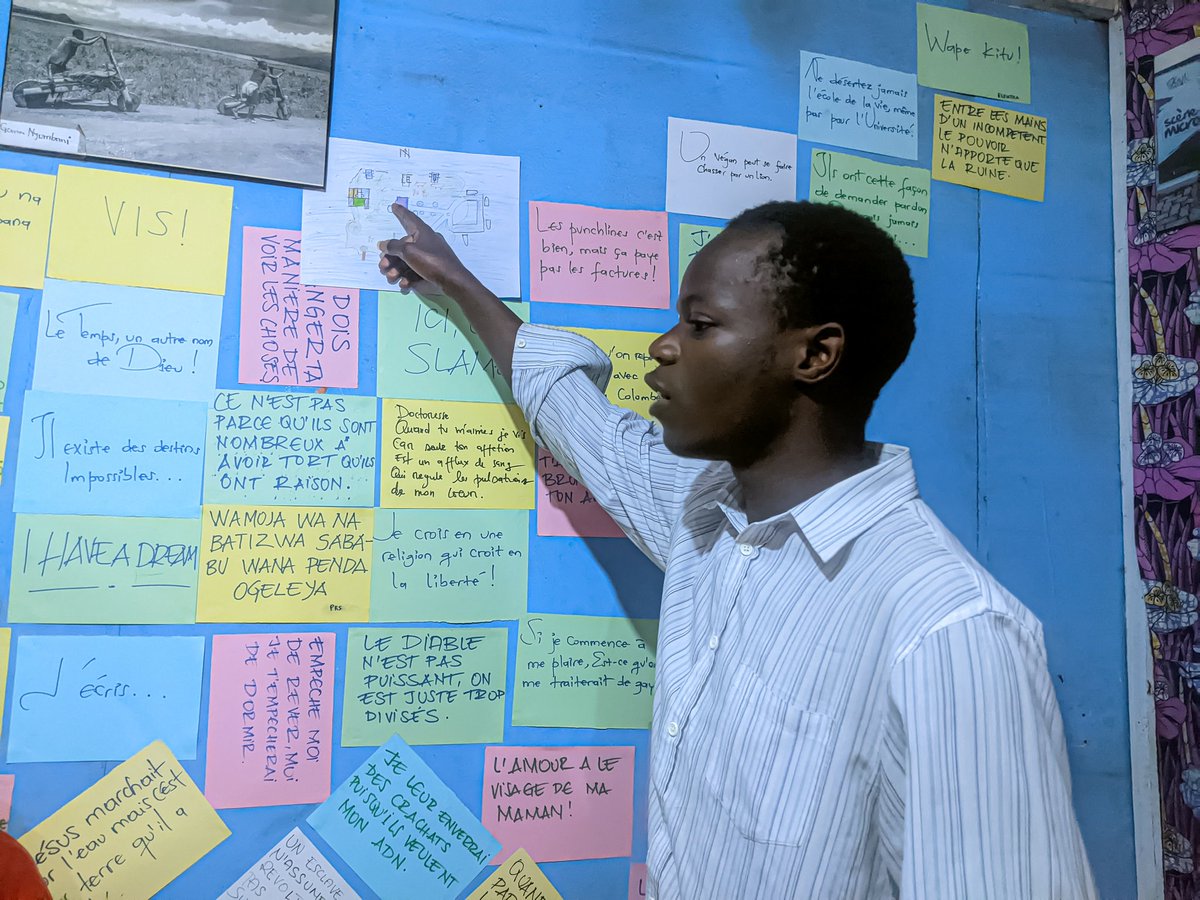 Goma Nyumbani
VIS!
Le Temps, un autre nom
de Dieu !
Il existe des destins
Impossibles...
I HAVE A DREAM
J'écris...
Jésus marchait
l'eau mais c'est
terre qu'il a
DOIS
TA
MANIÈRE DE
VOIR LES CHOSES
CE N'EST PAS
PARCE QU'ILS SONT
NOMBREUX A
AVOIR TORT QU'ILS
ONT RAISON.
WAMOJA WA NA
BATIZWA SABA-
BU WANA PENDA
OGELEYA
PRS
EMPECHE MOI
DE REVER, MOI
JE T'EMPECHERAI
DE DORMIR.
ICI
SLAM
Doctoresse
Quand tu m'aimes je vis
Car seule ton affetion
Est un afflux de sang
Qui régule les pulsations
de mon cœur.
Je crois en une
religion qui croit en
la liberté !
LE DIABLE
N'EST PAS
PUISSANT, ON
EST JUSTE TROP
DIVISÉS.
JE LEUR ENVERRAI
DES CRACHATS
PUISQU'ILS VEULENT
MON ADN.
UN ESCLAVE
N'ASSUME
PAS
Si je commence à
me plaire, Est-ce qu'on
me traiterait de gay
L'AMOUR A LE
VISAGE DE MA
MAMAN !
Les punchlines c'est
bien, mais ça paye
pas les factures !
avec
Colomb
Un végan peut se faire
chasser par un lion.
Ne désertez jamais
l'école de la vie, même
pas pour l'Université!
Ils ont cette façon
de demander pardon
jamais
Wape Kitu !
ENTRE LES MAINS
D'UN INCOMPETENT
LE POUVOIR
N'APPORTE QUE
LA RUINE.
scène